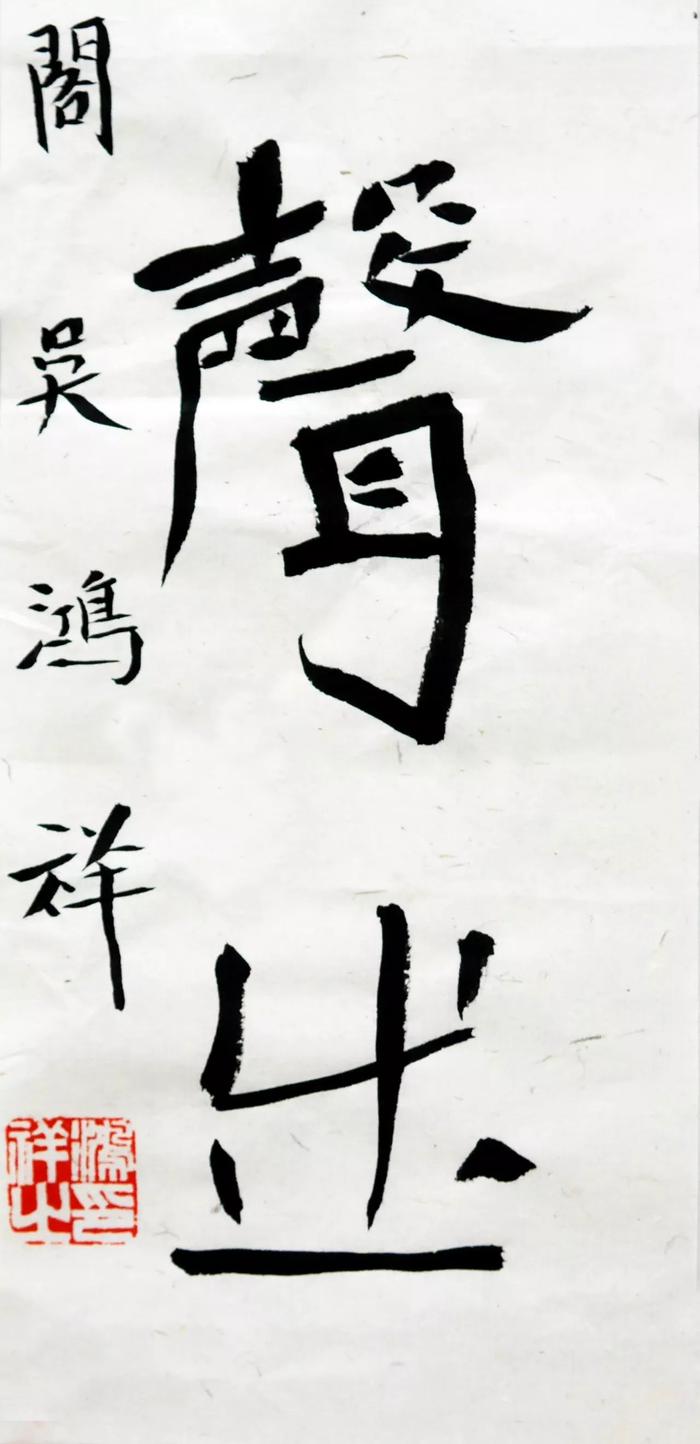 聲出
閣吳鴻祥
鴻祥之印